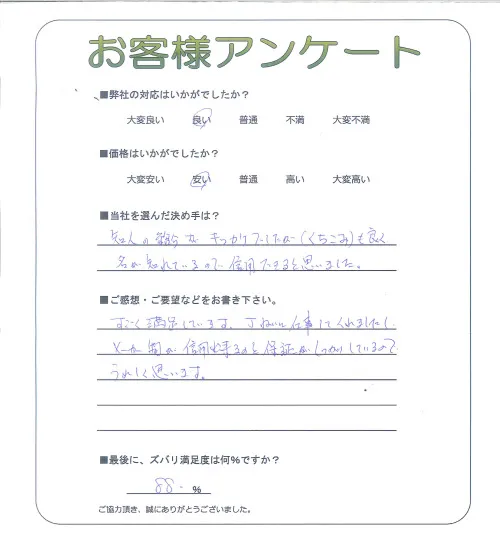 お客様アンケート
■弊社の対応はいかがでしたか？
大変良い 良い 普通 不満 大変不満
■価格はいかがでしたか？
大変安い 安い 普通 高い 大変高い
■当社を選んだ決め手は？
知人の紹介がキッカケでしたが(くちこみ)も良く
名が知れているので信用できると思いました。
■ご感想・ご要望などをお書き下さい。
すごく満足しています。丁ねいに仕事してくれましたし、
メーカー側が信用出来るのと保証がしっかりしているので
うれしく思います。
■最後に、ズバリ満足度は何%ですか？
88 %
ご協力頂き、誠にありがとうございました。